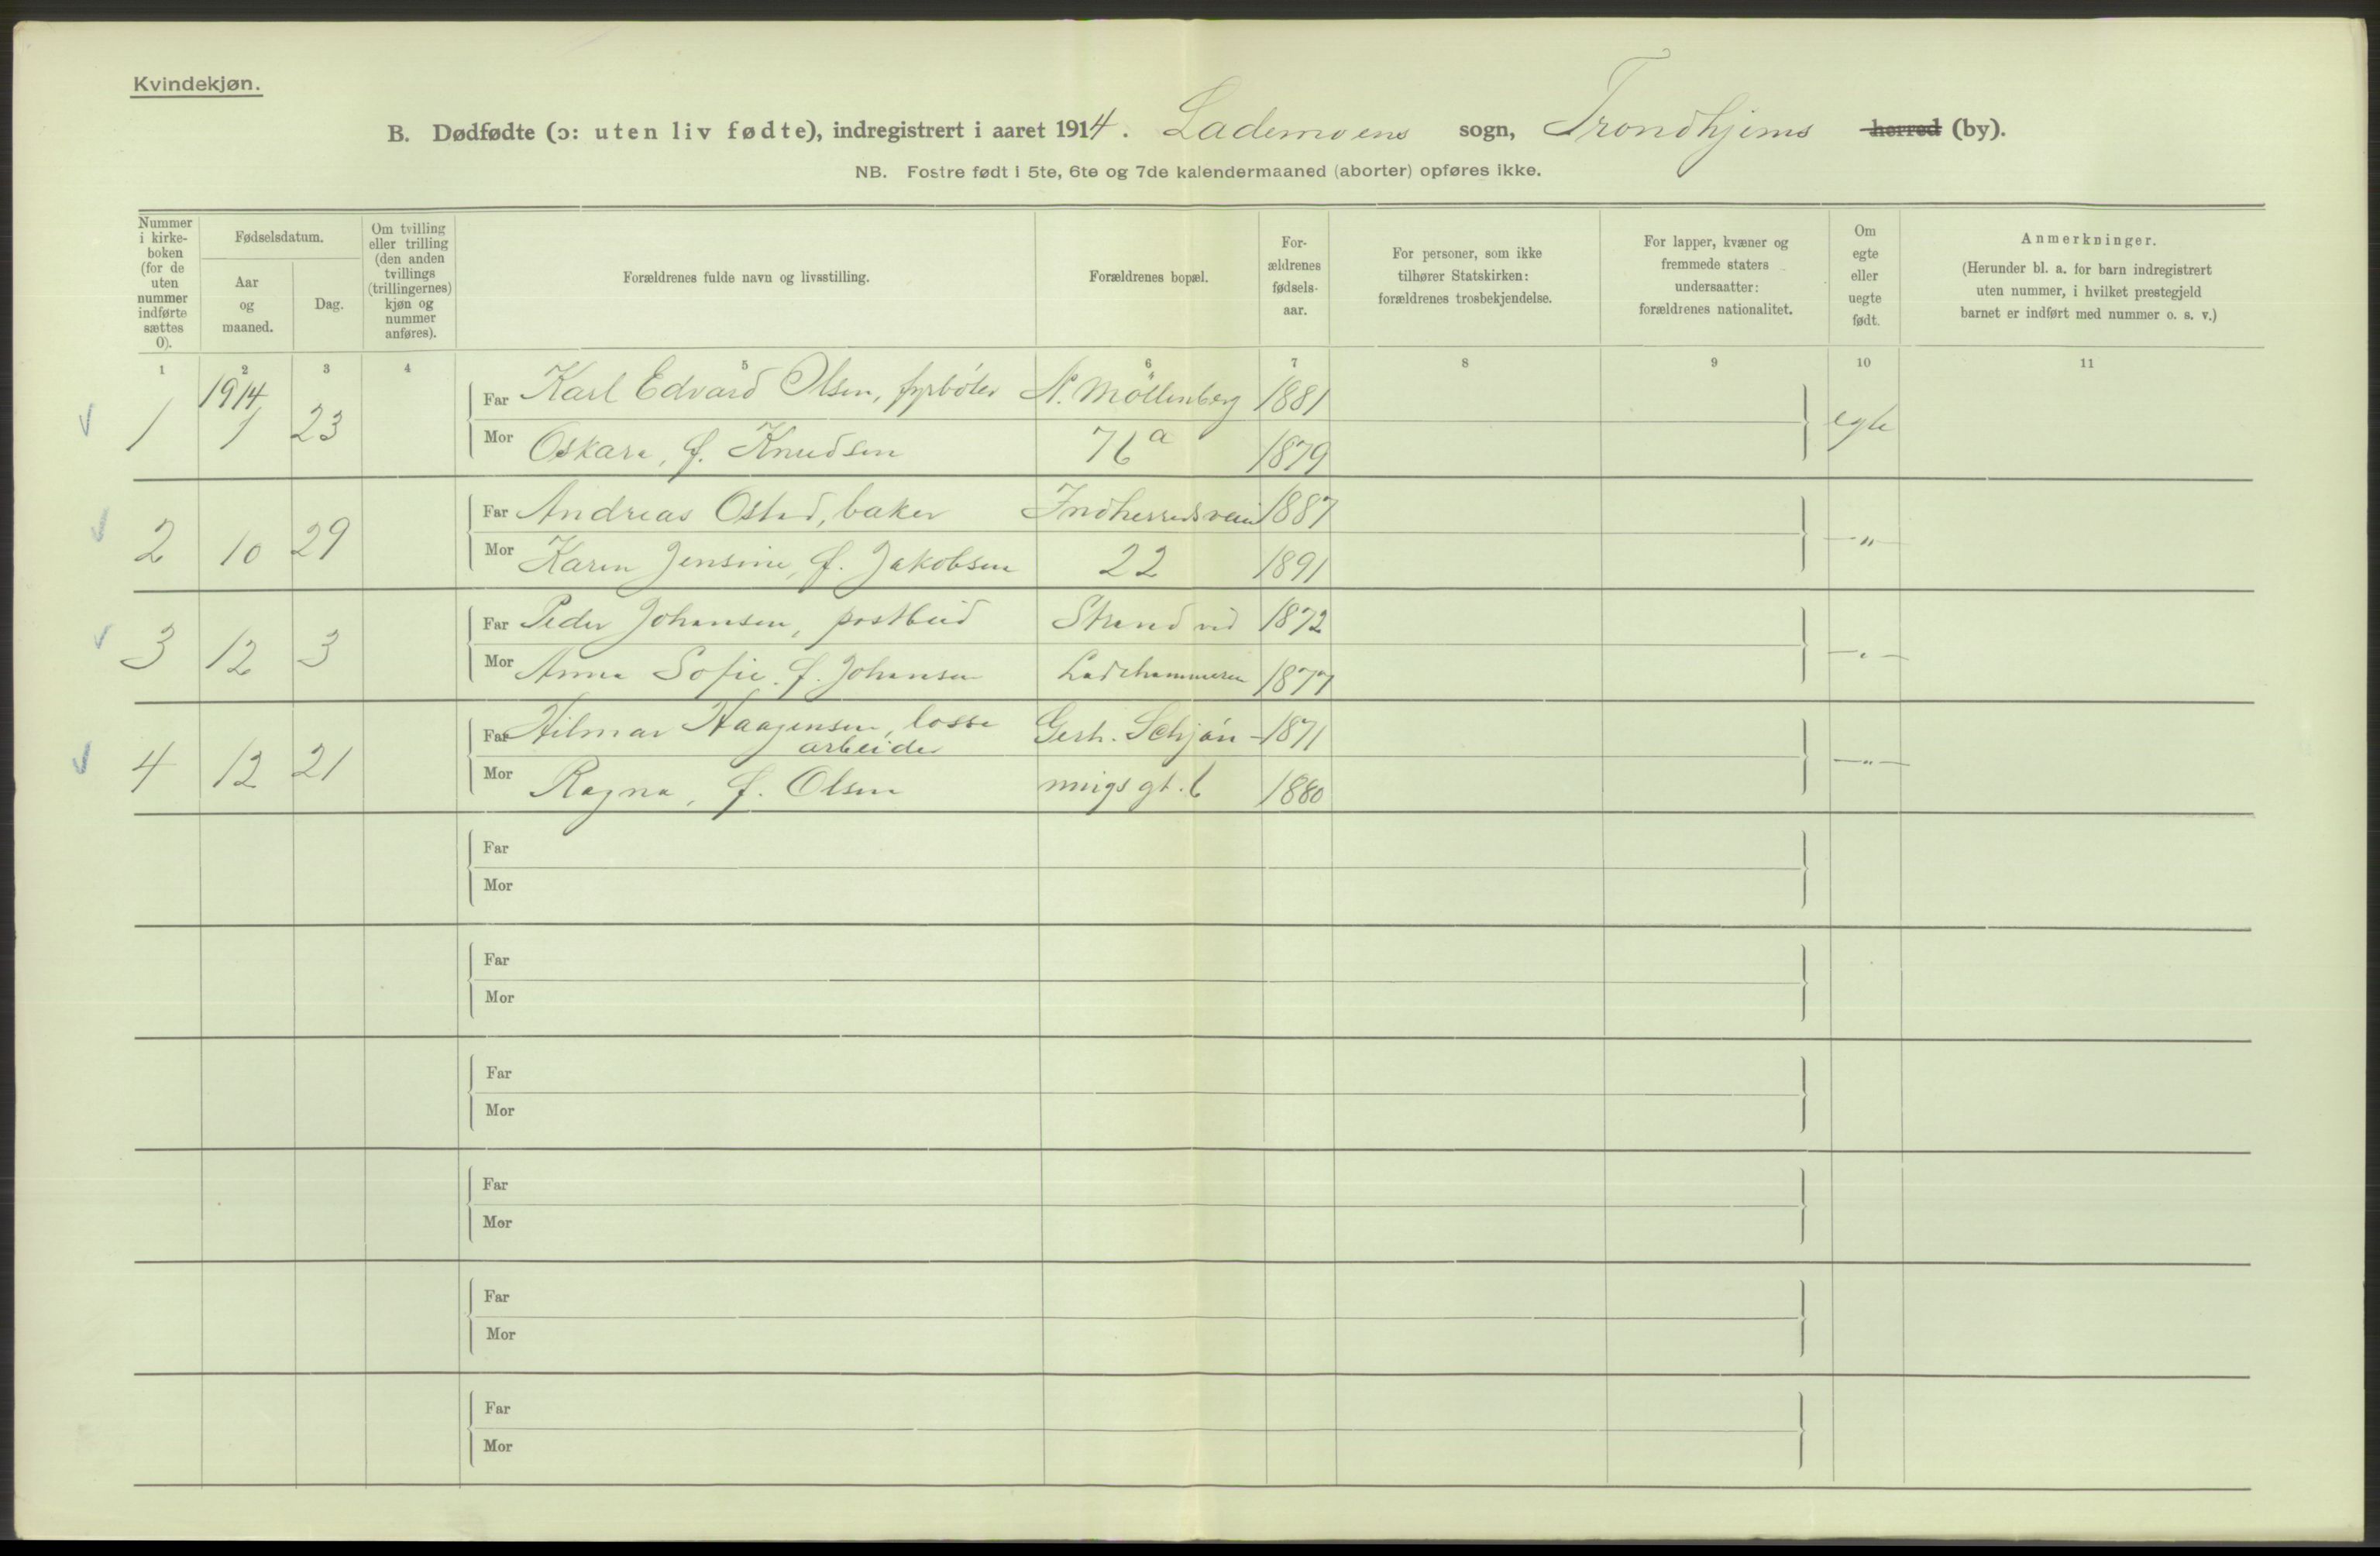 Kvindekjøn.
B. Dødfødte (ɔ: uten liv fødte), indregistrert i aaret 1914. Lademoens sogn, Trondhjems herred (by).
NB. Fostre født i 5te, 6te og 7de kalendermaaned (aborter) opføres ikke.
Nummer i kirke-boken (for de uten nummer indførte sættes 0).
Fødselsdatum.
Aar og maaned.
Dag.
Om tvilling eller trilling (den anden tvillings (trillingernes) kjøn og nummer anføres).
Forældrenes fulde navn og livsstilling.
Forældrenes bopæl.
For-ældrenes fødsels-aar.
For personer, som ikke tilhører Statskirken: forældrenes trosbekjendelse.
For lapper, kvæner og fremmede staters undersaatter: forældrenes nationalitet.
Om egte eller uegte født.
Anmerkninger.
(Herunder bl. a. for barn indregistrert uten nummer, i hvilket prestegjeld barnet er indført med nummer o. s. v.)
1 2 3 4 5 6 7 8 9 10 11
1914
1 1 23 Far Karl Edvard Olsen, fyrbøter N. Möllenberg 1881 egte
Mor Oskara, f. Knudsen 76a 1879
2 10 29 Far Andreas Østad, baker Indherredsvein 1887 -"-
Mor Karen Jensine, f. Jakobsen 22 1891
3 12 3 Far Peder Johansen, postbud Strand ved 1872 -"-
Mor Anna Sofie f. Johansen Ladehammeren 1877
4 12 21 Far Hilmar Haagensen, losse Gerh. Schjøn- 1871 -"-
arbeider
Mor Ragna, f. Olsen nings gt. 6 1880
Far
Mor
Far
Mor
Far
Mor
Far
Mor
Far
Mor
Far
Mor